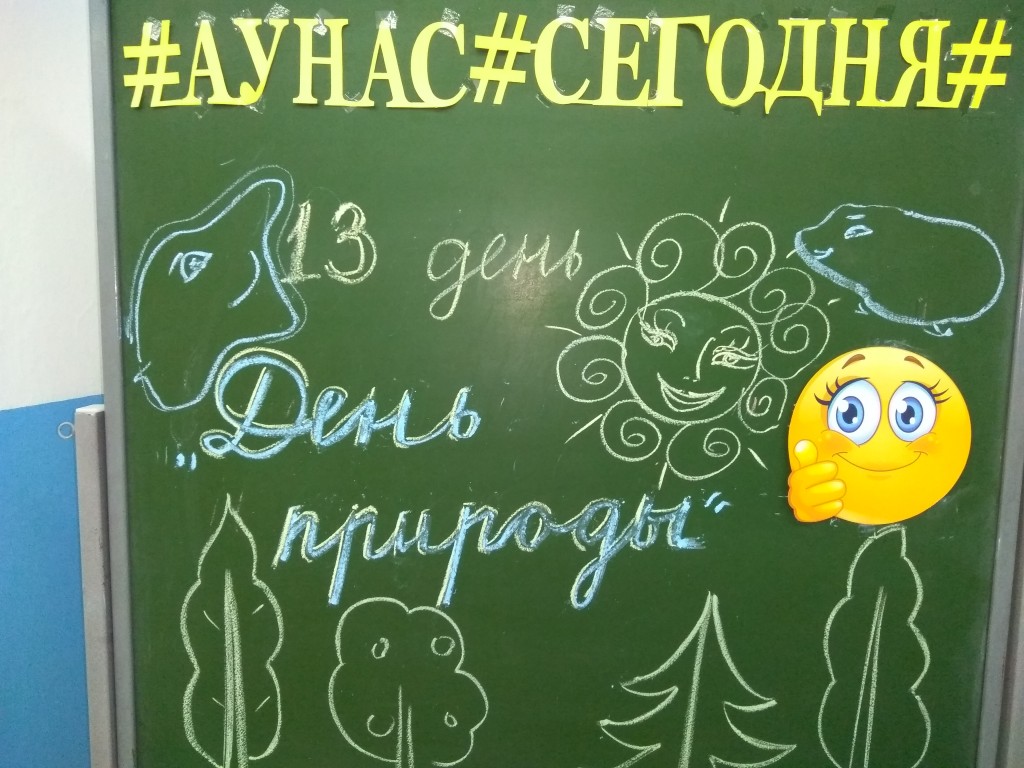 #АУНАС#СЕГОДНЯ#
13 день
„День
природы“